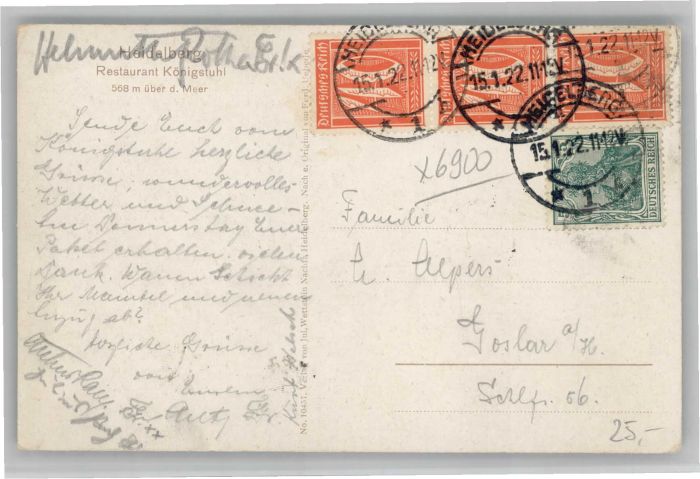 Heidelberg
Restaurant Königstuhl
568 m über d. Meer
Sende Euch vom
Königstuhl herzliche
Grüsse, wundervolles
Wetter und Schnee
Donnerstag Euer
Paket erhalten, vielen
Dank. Wann schickt
Ihr Mantel und neuen
Anzug ab?
Herzliche Grüsse
von
Eurem
Kurt
Nach e. Original von Ferd.
No. 10457. Verlag von Jul. Wettstein Nachf. Heidelberg.
Deutsches Reich
Deutsches Reich
HEIDELBERG
15.1.22.11-12V.
* 1
HEIDELBERG
15.1.22.11-12V.
* 1
HEIDELBERG
15.1.22.11-12V.
* 1
DEUTSCHES REICH
x6900
Familie
Alpers
Goslar a/H.
25,-